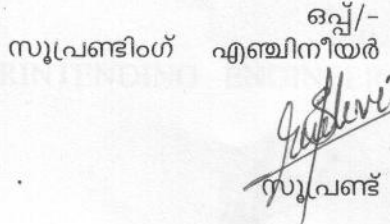 ഒപ്പ്/-
സൂപ്രണ്ടിംഗ് എഞ്ചിനീയർ
സൂപ്രണ്ട്